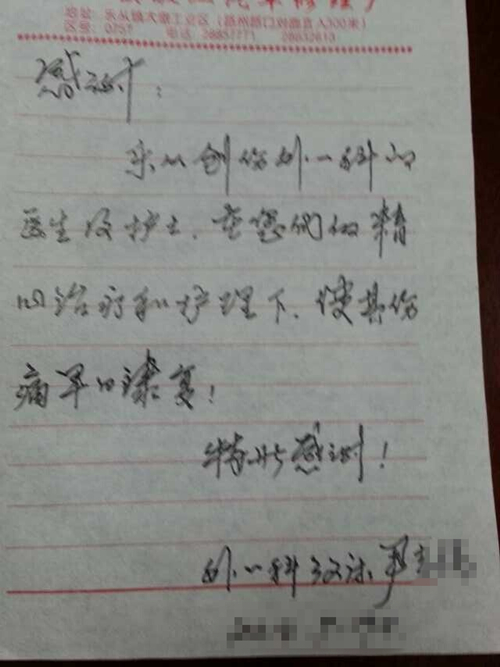 地址：乐从镇大墩工业区（路州路口对面直入300米）
区号：0757 电话：28837771 28832613
感谢：
乐从创伤外一科的
医生及护士，在您们的精
心治疗和护理下，使其伤
痛早日康复！
特此感谢！
外一科